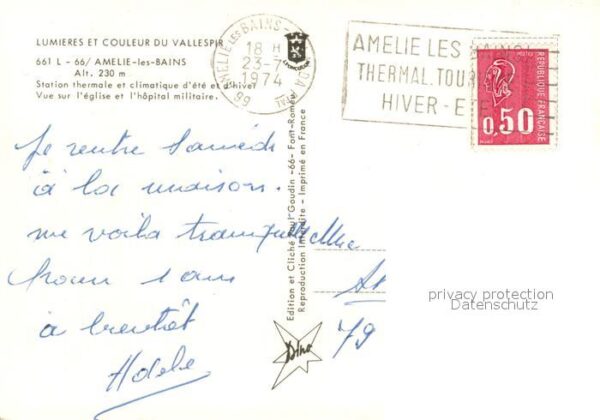 LUMIERES ET COULEUR DU VALLESPIR
661 L - 66/ AMELIE-les-BAINS
Alt. 230 m
Station thermale et climatique d'été et d'hiver
Vue sur l'église et l'hôpital militaire.
AMELIE LES BAINS-
18 H
23-7
1974
66
AMELIE LES BAINS
THERMAL. TOUR
HIVER - ETE
POSTES
REPUBLIQUE FRANÇAISE
0,50
Je rentre samedi
à la maison.
me voilà tranquille
pour 1 an
à bientôt
Adèle
Edition et Cliché Paul Gaudin -66- Font-Romeu
Reproduction Interdite - Imprimé en France
Dino
79
privacy protection
Datenschutz